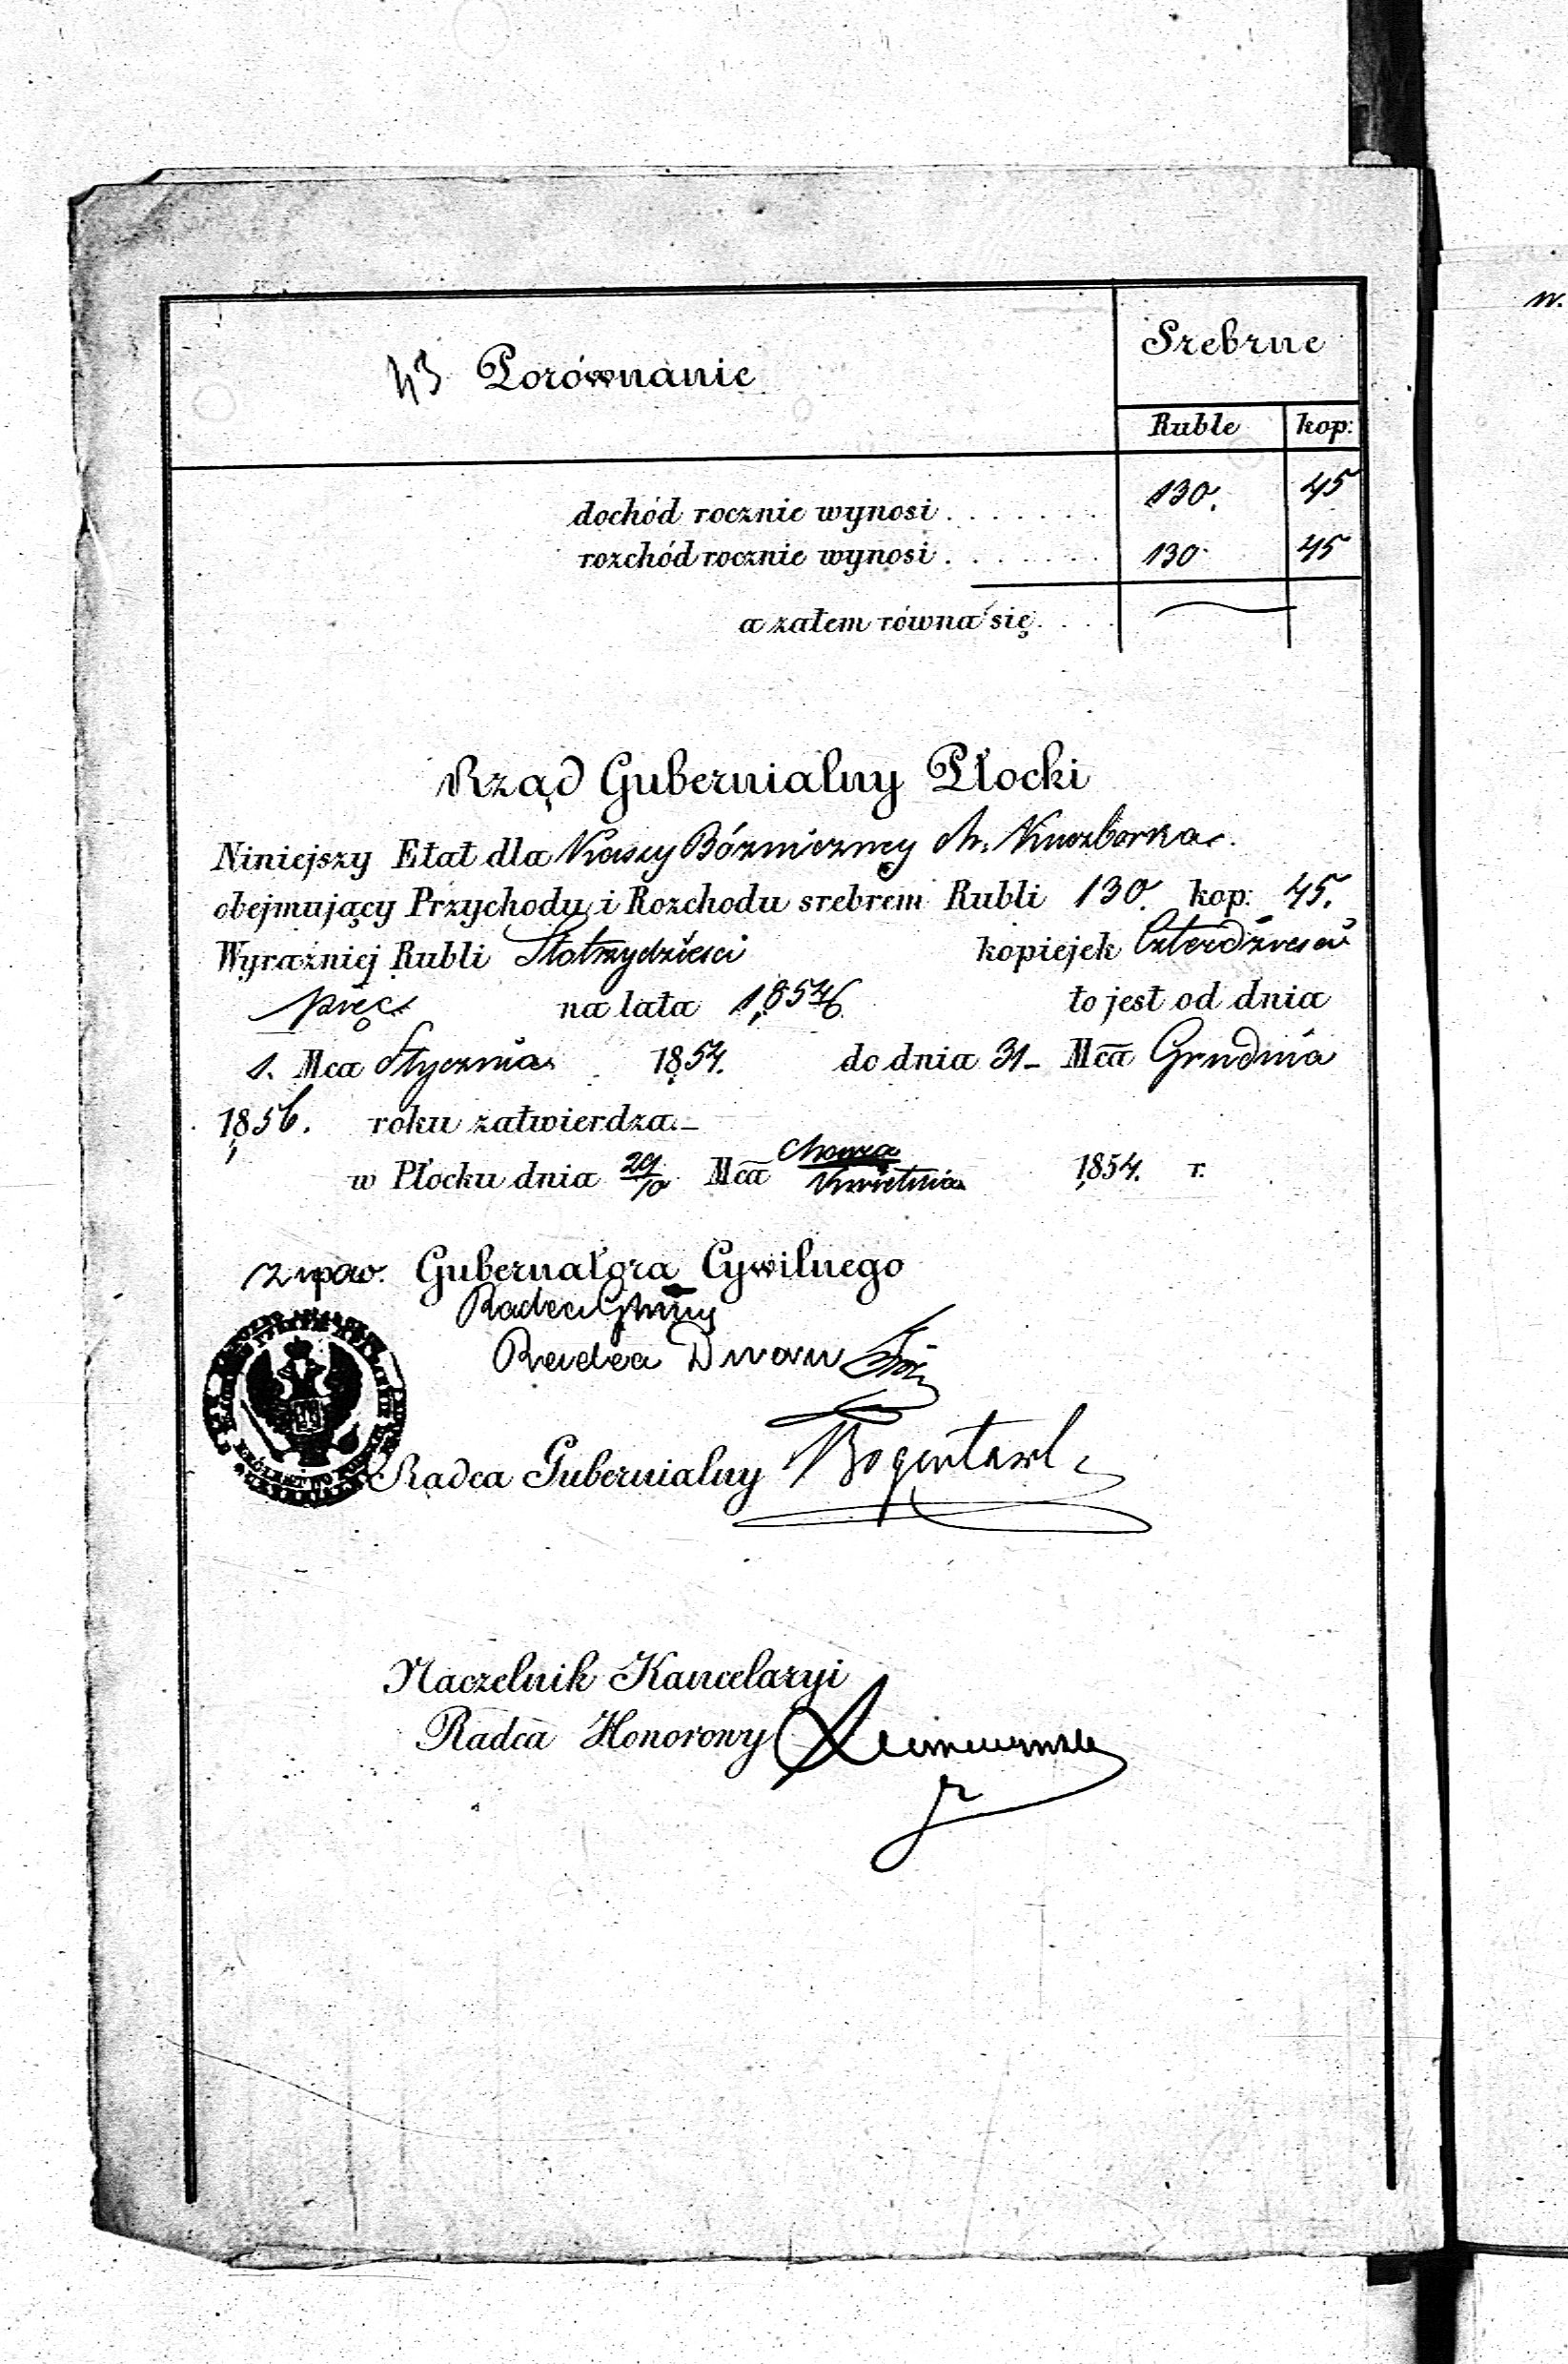 Porównanie
Srebrne
Ruble kop:
dochód rocznie wynosi . . . . . . . 130. 45
rozchód rocznie wynosi . . . . . . . 130 45
a zatem równa się. . . .
Rząd Gubernialny Płocki
Niniejszy Etat dla Kassy Bóżniczney M. Kuczborka
obejmujący Przychodu i Rozchodu srebrem Rubli 130. kop: 45.
Wyraźniej Rubli Stotrzydzieści kopiejek Czterdzieści
pięć na lata 1854/6 to jest od dnia
1. Mca Stycznia 1854. do dnia 31 Mca Grudnia
1856. roku zatwierdza.
w Płocku dnia 29/10 Mca Marca/Kwietnia 1854. r.
Gubernatora Cywilnego
Radca
Radca Dworu
Radca Gubernialny
Naczelnik Kancelaryi
Radca Honorowy